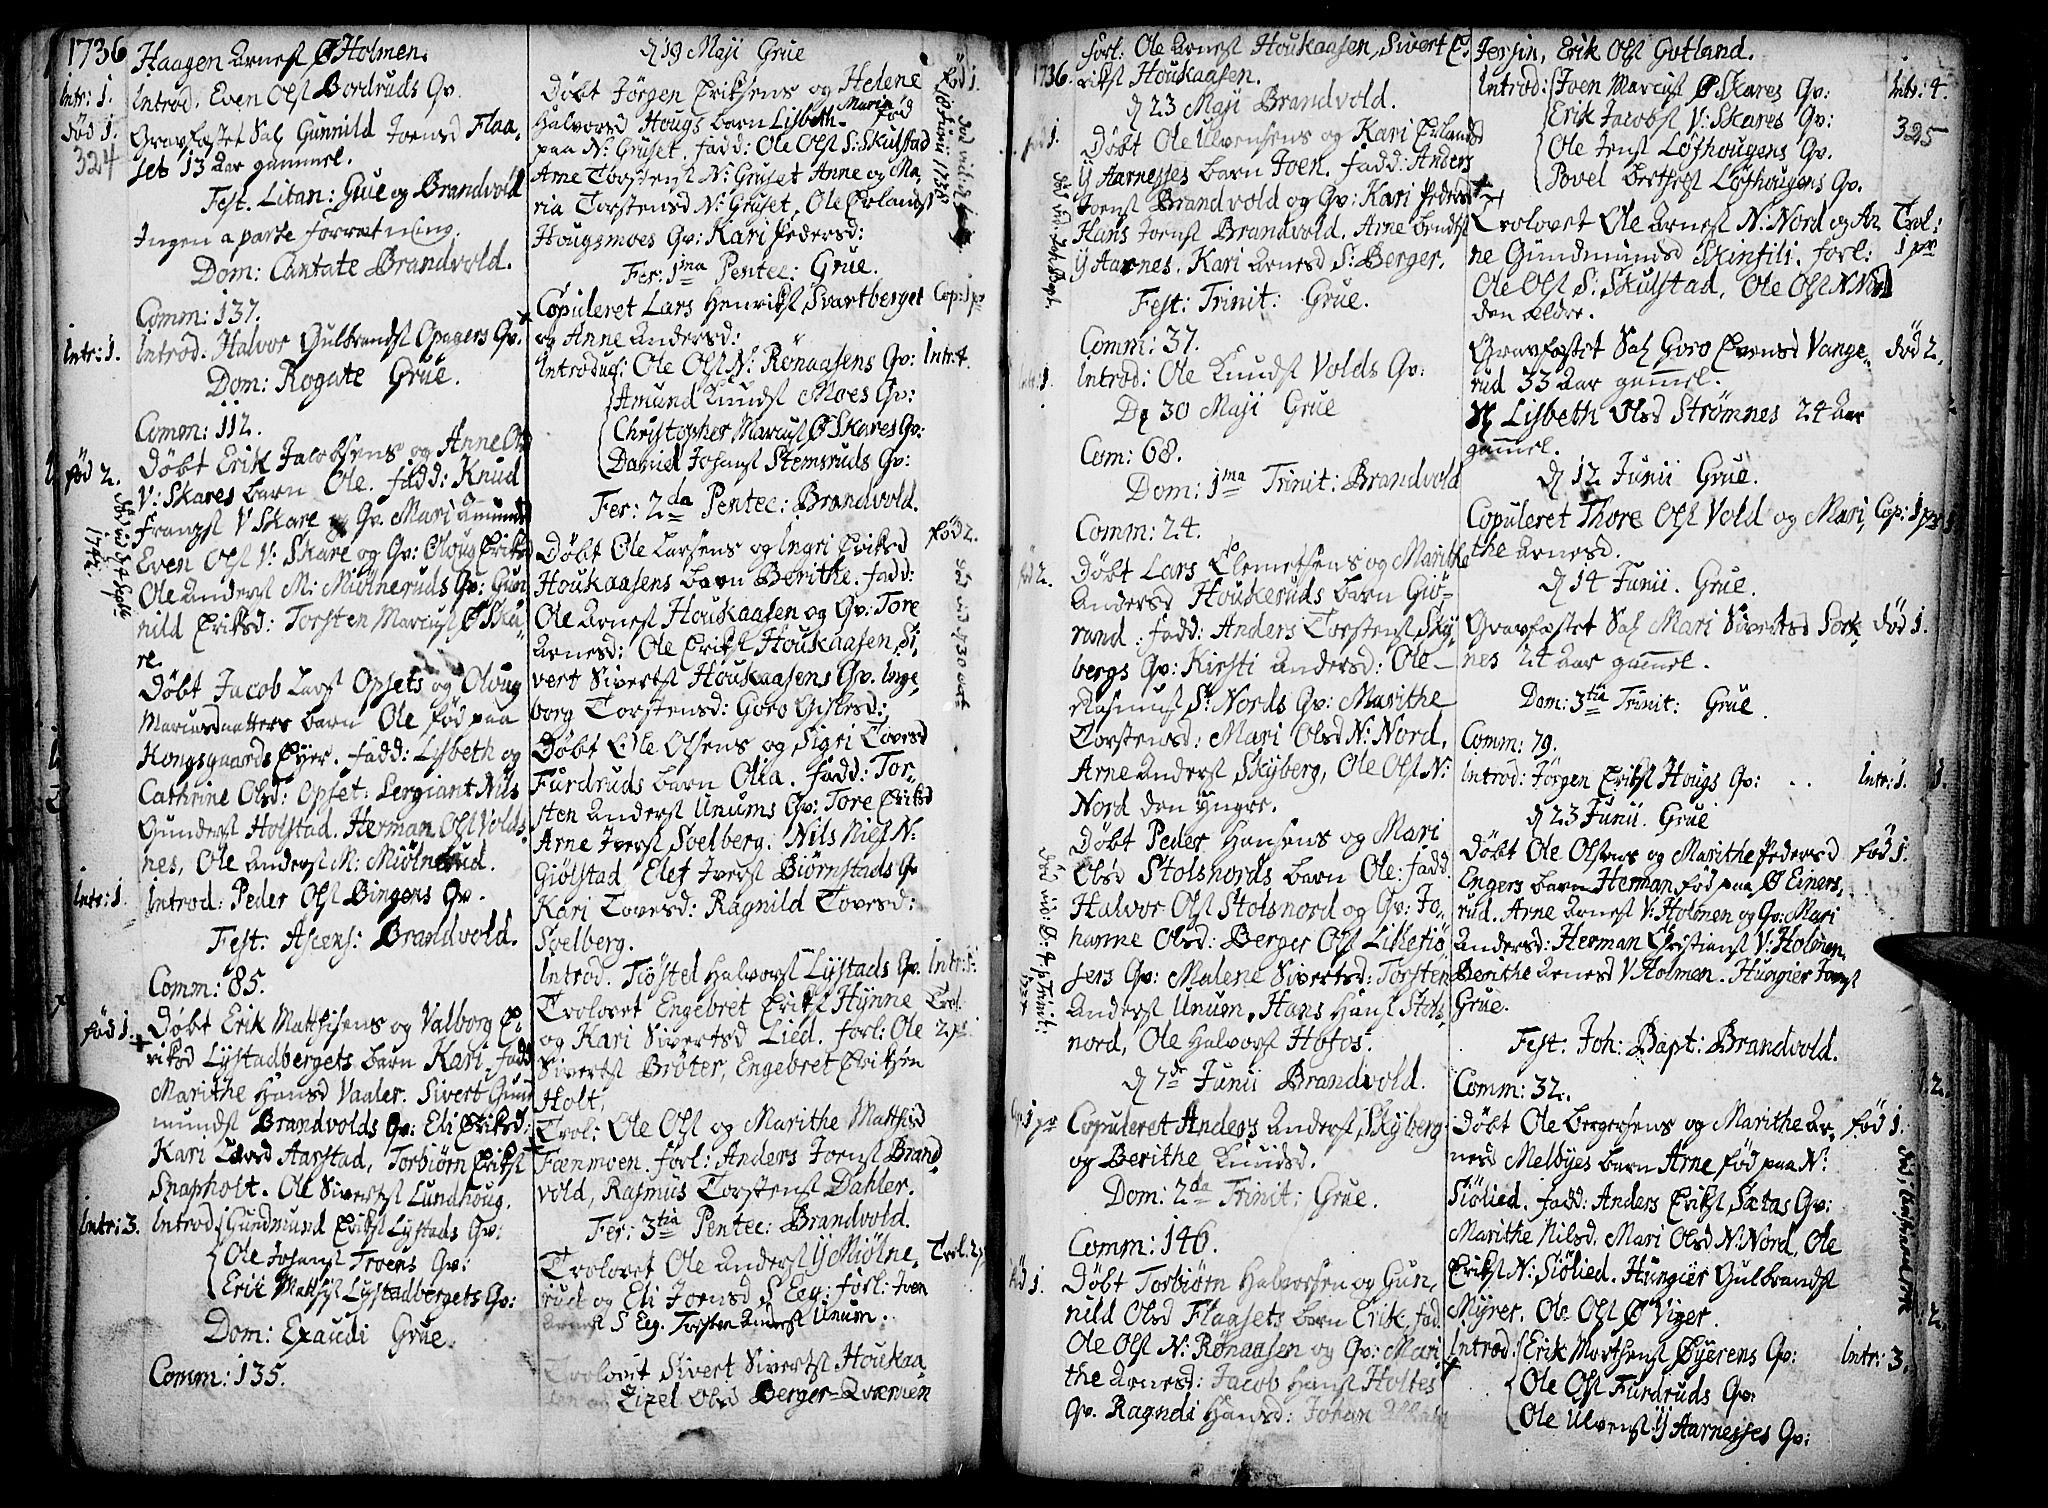 1736
Haagen Arnesſ Ø Holmen.
Intr: 1. Introd. Even Olsſ Bordruds Qv.
død 1. Gravfæstet Sal Gunnild Joensd Flaa-
324 set 13 Aar gammel.
Fest. Litan: Grue og Brandvold
Ingen aparte forretning.
Dom: Cantate Brandvold.
Comm: 137.
Intr: 1. Introd. Halvor Gulbrandsſ Opagers Qv.
Dom: Rogate Grue.
Comm: 112.
Død 2. Døbt Erik Jacobsens og Anne Ols
V: Skares barn Ole. fadd: Knud
Franzsſ V Skare og Qv. Mari Amunds
Even Olsſ V: Skare og Qv: Oloug Eriksd
Ole Andersſ M: Miølneruds Qv: Gun
nild Eriksd: Torsten Marcusſ Ø Ska-
re.
Døbt Jacob Larsſ Opsets og Oloug
Marcusdatters barn Ole fød paa
Hongsgaards Eyer. fadd: Lisbeth og
Cathrine Olsd: Opset: Sergiant Nils
Gundersſ Holstad. Herman Olsſ Volds-
nes, Ole Andersſ M: Miølnerud.
Intr: 1. Introd: Peder Olsſ Dingens Qv.
Fest: Ascens: Brandvold.
Comm: 85.
fød 1. Døbt Erik Mathisens og Valborg E-
riksd Lystadbergets barn Kari. fadd
Marithe Hansd Vaaler. Sivert Gund
mundsſ Brandvolds Qv: Eli Eriksd:
Kari Larsd Aarstad, Torbiørn Eriksſ
Snapholt. Ole Sivertsſ Lundhoug.
Intr: 3. Introd: Gundmund Eriksſ Lystads Qv:
Ole Johansſ Troens Qv:
Erik Mathisſ Lystadbergets Qv:
Dom: Exaudi Grue.
Comm: 135.
d 19 Maji Grue
Døbt Jørgen Eriksens og Helene fød 1.
Halvorsd Hougs barn Lisbeth Maria fød
paa N: Gruset. fadd: Ole Olsſ S: Skulstad
Arne Torstensſ N: Gruset Anne og Ma-
ria Torstensd N: Gruset, Ole Erlandsſ
Hougsmoes Qv: Kari Pedersd:
Fer: 1ma Pentec: Grue.
Copuleret Lars Henriksſ Svartberget Cop: 1 pr
og Anne Andersd:
Introduc: Ole Olsſ N: Rønaasens Qv: Intr: 4.
Amund Knudsſ Moes Qv:
Christopher Marcusſ Ø Skares Qv:
Daniel Johansſ Stemsruds Qv:
Fer: 2da Pentec: Brandvold.
Døbt Ole Larsens og Ingri Eriksd fød 2.
Houkaasens barn Berithe. fadd:
Ole Arnesſ Houkaasen og Qv: Tore
Arnesd: Ole Eriksſ Houkaasen, Si-
vert Sivertsſ Houkaasens Qv. Inge-
borg Torstensd: Goro Gislesd:
Døbt Ole Olsens og Sigri Tovesd
Furdruds barn Olia. fadd: Tor-
sten Andersſ Unums Qv: Tore Eriksd
Arne Iversſ Svelberg. Nils Nilsſ N:
Giølstad Elef Iversſ Biørnstads Qv
Kari Tovesd: Ragnild Tovesd:
Svelberg.
Introd. Tiøstel Halvorsſ Lystads Qv. Intr: 1.
Trolovet Engebret Eriksſ Hynne Trol.
og Kari Sivertsd Lied. forl: Ole 2 pr
Sivertsſ Brøter, Engebret Eriksen
Holt.
Trol: Ole Olsſ og Marithe Mathisd
Fænmoen. forl: Anders Joensſ Brand-
vold, Rasmus Torstensſ Dahler.
Fer: 3tia Pentec: Brandvold.
Trolovet Ole Andersſ Y Miølne- Trol. 2 pr
rud og Eli Joensd S Eeg: forl: Iven
Arnesſ S Eeg. Torsten Andersſ Unum.
Trolovet Sivert Sivertsſ Houkaa-
sen og Zizel Olsd Berger-Qværnen
1736.
forl: Ole Arnesſ Houkaasen, Sivert E-
riksſ Houkaasen.
d 23 Maji Brandvold.
fød 1. Døbt Ole Ulvensens og Kari Erlands
Y Aarnesses barn Joen. fadd: Anders
Joensſ Brandvold og Qv: Kari Pedersd
Hans Joensſ Brandvold. Arne Bendtsſ
Y Aarnes. Kari Arnesd S: Berger.
Fest: Trinit: Grue.
Comm: 37.
Intr: 1. Introd: Ole Knudsſ Volds Qv:
D 30 Maji Grue
Com: 68.
Dom: 1ma Trinit: Brandvold
Comm: 24.
fød 2. Døbt Lars Clemetsens og Marithe
Andersd Houkeruds barn Giø-
rand. fadd: Anders Torstensſ Sky-
bergs Qv: Kirsti Andersd: Ole
Rasmusſ S: Nords Qv: Marithe
Torstensd: Mari Olsd N: Nord,
Arne Andersſ Skyberg, Ole Olsſ N:
Nord den yngre.
Døbt Peder Hansens og Mari
Olsd Stolsnords barn Ole. fadd
Halvor Olsſ Stolsnord og Qv: Jo-
hanne Olsd: Berger Olsſ Lilletiø
sers Qv: Malene Sivertsd: Torsten
Andersſ Unum. Hans Hansſ Stols-
nord, Ole Halvorsſ Hofos.
d 7de Junii Brandvold.
Cop: 1 pr Copuleret Anders Andersſ Skyberg
og Berithe Knudsd.
Dom: 2da Trinit: Grue.
Comm: 146.
fød 1. Døbt Torbiørn Halvorsen og Gun-
nild Olsd Flaasets barn Erik. fad.
Ole Olsſ N: Rønaasen og Qv: Mari
the Arnesd: Jacob Hansſ Holtes
Qv. Ragndi Hansd: Johan
Jersin, Erik Olsſ Gotland.
Introd: Joen Marcusſ Ø Skares Qv: Intr: 4.
Erik Jacobsſ V: Skares Qv: 325
Ole Jensſ Løfhougens Qv.
Povel Berthelsſ Løfhougens Qv.
Trolovet Ole Arnesſ N: Nord og An Trol:
ne Gundmundsd Skinfili. forl: 1 pr
Ole Olsſ S: Skulstad, Ole Olsſ N Nord
den ældre.
Gravfæstet Sal Goro Evensd Vange- død 2.
rud 33 Aar gammel.
Lisbeth Olsd Strømnes 24 Aar
gammel.
d 12 Junii Grue.
Copuleret Thore Olsſ Vold og Mari Cop: 1 pr
the Arnesd.
d 14 Junii. Grue.
Gravfæstet Sal Mari Sivertsd Sork- død 1.
nes 24 Aar gammel.
Dom: 3tia Trinit: Grue.
Comm: 79.
Introd: Jørgen Eriksſ Hougs Qv: Intr: 1.
d 23 Junii. Grue
Døbt Ole Olsens og Marithe Pedersd fød 1.
Engers barn Herman fød paa Ø Einers-
rud. Arne Arnesſ V: Holmen og Qv: Mari
Andersd: Herman Christiansſ V: Holmen,
Berithe Arnesd V. Holmen. Hungier Joensſ
Grue.
Fest. Joh: Bapt: Brandvold.
Comm: 32.
Døbt Ole Bergersens og Marithe Ar- fød 1.
nesd Melbyes barn Arne fød paa N:
Siølied. fadd: Anders Eriksſ Sætas Qv:
Marithe Nilsd. Mari Olsd N: Nord, Ole
Eriksſ N: Siølied. Hungier Gulbrandsſ
Myrer. Ole Olsſ Ø Viger.
Introd: Erik Morthensſ Øyerens Qv: Intr: 3.
Ole Olsſ Furdruds Qv:
Ole Ulvensſ Y Aarnesses Qv: